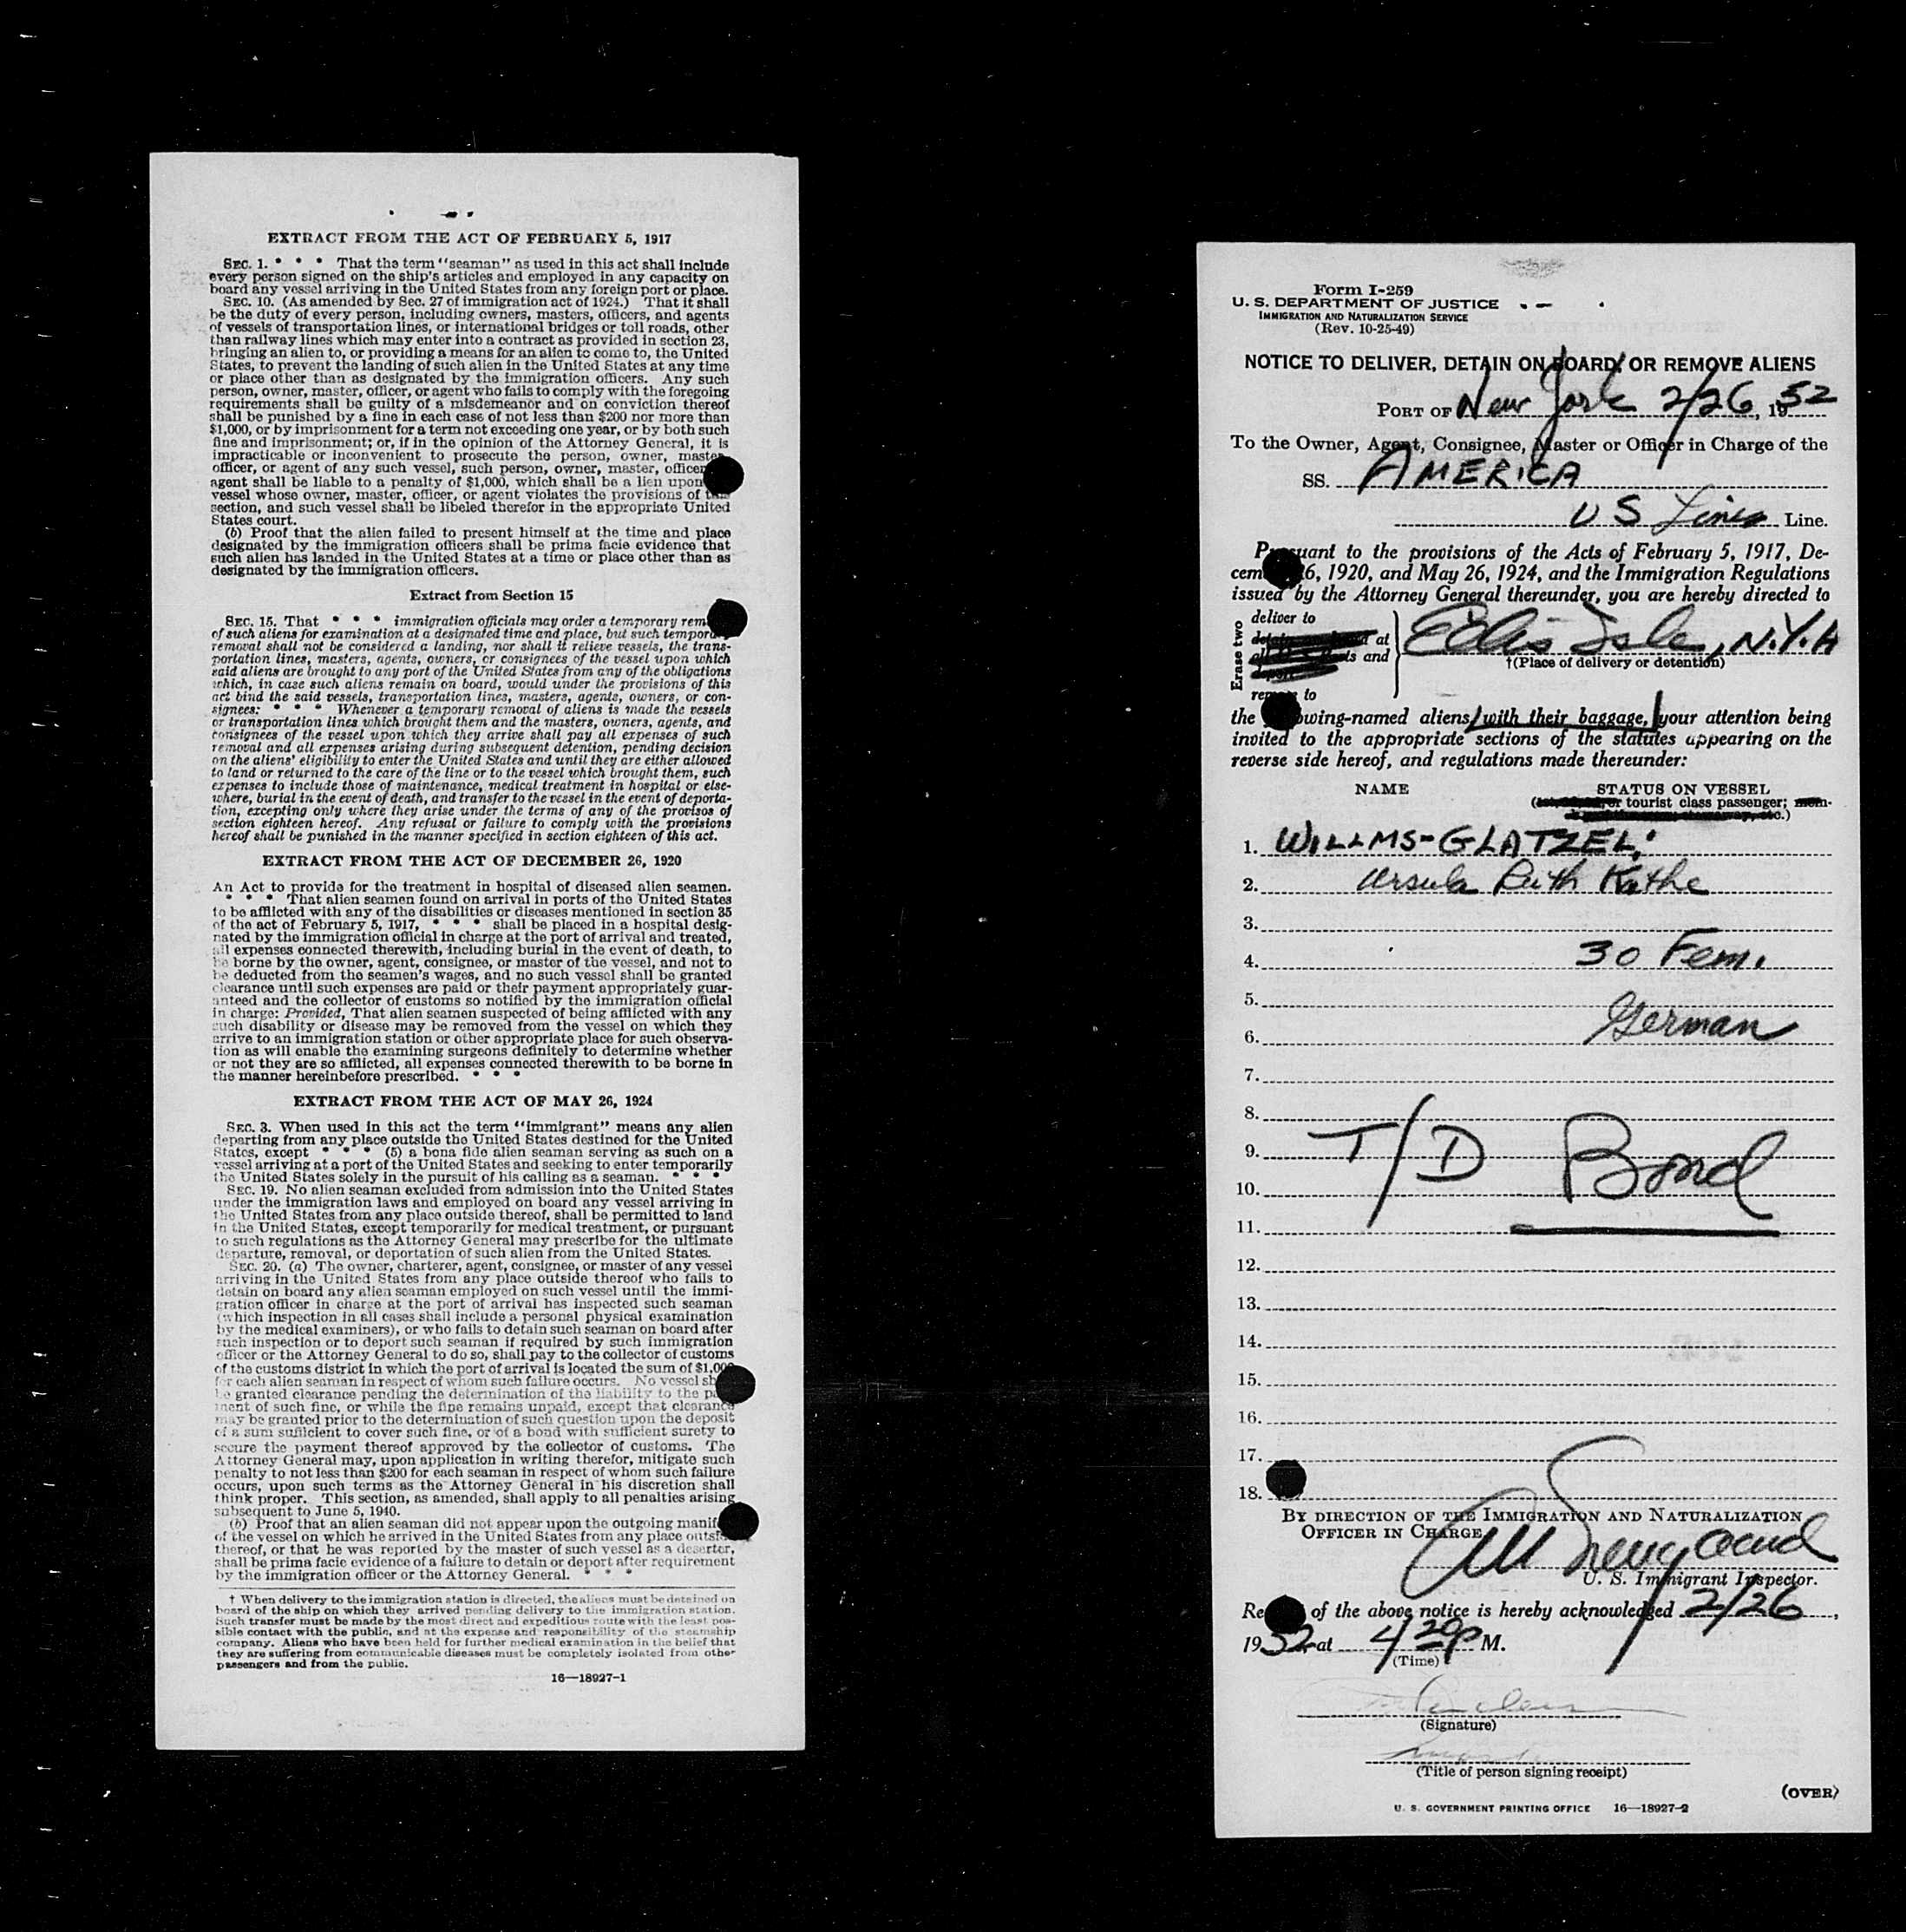 EXTRACT FROM THE ACT OF FEBRUARY 5, 1917
SEC. 1. * * * That the term "seaman" as used in this act shall include
every person signed on the ship's articles and employed in any capacity on
board any vessel arriving in the United States from any foreign port or place.
SEC. 10. (As amended by Sec. 27 of immigration act of 1924.) That it shall
be the duty of every person, including owners, masters, officers, and agents
of vessels of transportation lines, or international bridges or toll roads, other
than railway lines which may enter into a contract as provided in section 23,
bringing an alien to, or providing a means for an alien to come to, the United
States, to prevent the landing of such alien in the United States at any time
or place other than as designated by the immigration officers. Any such
person, owner, master, officer, or agent who fails to comply with the foregoing
requirements shall be guilty of a misdemeanor and on conviction thereof
shall be punished by a fine in each case of not less than $200 nor more than
$1,000, or by imprisonment for a term not exceeding one year, or by both such
fine and imprisonment; or, if in the opinion of the Attorney General, it is
impracticable or inconvenient to prosecute the person, owner, master,
officer, or agent of any such vessel, such person, owner, master, officer
agent shall be liable to a penalty of $1,000, which shall be a lien upon
vessel whose owner, master, officer, or agent violates the provisions of this
section, and such vessel shall be libeled therefor in the appropriate United
States court.
(b) Proof that the alien failed to present himself at the time and place
designated by the immigration officers shall be prima facie evidence that
such alien has landed in the United States at a time or place other than as
designated by the immigration officers.
Extract from Section 15
SEC. 15. That * * * immigration officials may order a temporary rem
of such aliens for examination at a designated time and place, but such temporary
removal shall not be considered a landing, nor shall it relieve vessels, the trans-
portation lines, masters, agents, owners, or consignees of the vessel upon which
said aliens are brought to any port of the United States from any of the obligations
which, in case such aliens remain on board, would under the provisions of this
act bind the said vessels, transportation lines, masters, agents, owners, or con-
signees: * * * Whenever a temporary removal of aliens is made the vessels
or transportation lines which brought them and the masters, owners, agents, and
consignees of the vessel upon which they arrive shall pay all expenses of such
removal and all expenses arising during subsequent detention, pending decision
on the aliens' eligibility to enter the United States and until they are either allowed
to land or returned to the care of the line or to the vessel which brought them, such
expenses to include those of maintenance, medical treatment in hospital or else-
where, burial in the event of death, and transfer to the vessel in the event of deporta-
tion, excepting only where they arise under the terms of any of the provisos of
section eighteen hereof. Any refusal or failure to comply with the provisions
hereof shall be punished in the manner specified in section eighteen of this act.
EXTRACT FROM THE ACT OF DECEMBER 26, 1920
An Act to provide for the treatment in hospital of diseased alien seamen.
* * * That alien seamen found on arrival in ports of the United States
to be afflicted with any of the disabilities or diseases mentioned in section 35
of the act of February 5, 1917, * * * shall be placed in a hospital desig-
nated by the immigration official in charge at the port of arrival and treated,
all expenses connected therewith, including burial in the event of death, to
be borne by the owner, agent, consignee, or master of the vessel, and not to
be deducted from the seamen's wages, and no such vessel shall be granted
clearance until such expenses are paid or their payment appropriately guar-
anteed and the collector of customs so notified by the immigration official
in charge: Provided, That alien seamen suspected of being afflicted with any
such disability or disease may be removed from the vessel on which they
arrive to an immigration station or other appropriate place for such observa-
tion as will enable the examining surgeons definitely to determine whether
or not they are so afflicted, all expenses connected therewith to be borne in
the manner hereinbefore prescribed. * * *
EXTRACT FROM THE ACT OF MAY 26, 1924
SEC. 3. When used in this act the term "immigrant" means any alien
departing from any place outside the United States destined for the United
States, except * * * (5) a bona fide alien seaman serving as such on a
vessel arriving at a port of the United States and seeking to enter temporarily
the United States solely in the pursuit of his calling as a seaman. * * *
SEC. 19. No alien seaman excluded from admission into the United States
under the immigration laws and employed on board any vessel arriving in
the United States from any place outside thereof, shall be permitted to land
in the United States, except temporarily for medical treatment, or pursuant
to such regulations as the Attorney General may prescribe for the ultimate
departure, removal, or deportation of such alien from the United States.
SEC. 20. (a) The owner, charterer, agent, consignee, or master of any vessel
arriving in the United States from any place outside thereof who fails to
detain on board any alien seaman employed on such vessel until the immi-
gration officer in charge at the port of arrival has inspected such seaman
(which inspection in all cases shall include a personal physical examination
by the medical examiners), or who fails to detain such seaman on board after
such inspection or to deport such seaman if required by such immigration
officer or the Attorney General to do so, shall pay to the collector of customs
of the customs district in which the port of arrival is located the sum of $1,000
for each alien seaman in respect of whom such failure occurs. No vessel sh
be granted clearance pending the determination of the liability to the pa
ment of such fine, or while the fine remains unpaid, except that clearance
may be granted prior to the determination of such question upon the deposit
of a sum sufficient to cover such fine, or of a bond with sufficient surety to
secure the payment thereof approved by the collector of customs. The
Attorney General may, upon application in writing therefor, mitigate such
penalty to not less than $200 for each seaman in respect of whom such failure
occurs, upon such terms as the Attorney General in his discretion shall
think proper. This section, as amended, shall apply to all penalties arising
subsequent to June 5, 1940.
(b) Proof that an alien seaman did not appear upon the outgoing manif
of the vessel on which he arrived in the United States from any place outside
thereof, or that he was reported by the master of such vessel as a deserter,
shall be prima facie evidence of a failure to detain or deport after requirement
by the immigration officer or the Attorney General. * * *
† When delivery to the immigration station is directed, the aliens must be detained on
board of the ship on which they arrived pending delivery to the immigration station.
Such transfer must be made by the most direct and expeditious route with the least pos-
sible contact with the public, and at the expense and responsibility of the steamship
company. Aliens who have been held for further medical examination in the belief that
they are suffering from communicable diseases must be completely isolated from other
passengers and from the public.
16—18927-1
Form I-259
U. S. DEPARTMENT OF JUSTICE
IMMIGRATION AND NATURALIZATION SERVICE
(Rev. 10-25-49)
NOTICE TO DELIVER, DETAIN ON BOARD, OR REMOVE ALIENS
PORT OF New York 2/26, 1952
To the Owner, Agent, Consignee, Master or Officer in Charge of the
SS. AMERICA
US Lines Line.
Pursuant to the provisions of the Acts of February 5, 1917, De-
cem 26, 1920, and May 26, 1924, and the Immigration Regulations
issued by the Attorney General thereunder, you are hereby directed to
Erase two
deliver to
at
and
remove to
Ellis Isle, N.Y.H
†(Place of delivery or detention)
the following-named aliens, with their baggage, your attention being
invited to the appropriate sections of the statutes appearing on the
reverse side hereof, and regulations made thereunder:
NAME STATUS ON VESSEL
or tourist class passenger; mem-
etc.)
1. WILLMS-GLATZEL,
2. Ursula Ruth Kathe
3.
4. 30 Fem.
5.
6. German
7.
8.
9. T/D Bond
10.
11.
12.
13.
14.
15.
16.
17.
18.
BY DIRECTION OF THE IMMIGRATION AND NATURALIZATION
OFFICER IN CHARGE
U. S. Immigrant Inspector.
Re of the above notice is hereby acknowledged 2/26,
1952 at 4 20 P M.
(Time)
(Signature)
(Title of person signing receipt)
(OVER)
U. S. GOVERNMENT PRINTING OFFICE 16—18927-2